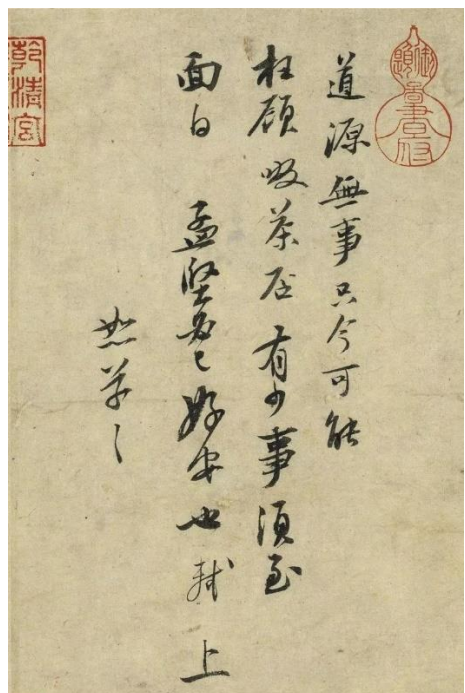 道源無事只今可能
枉顧啜茶否有少事須至
面白孟堅必已好安也軾上
恕草々
乾清宮